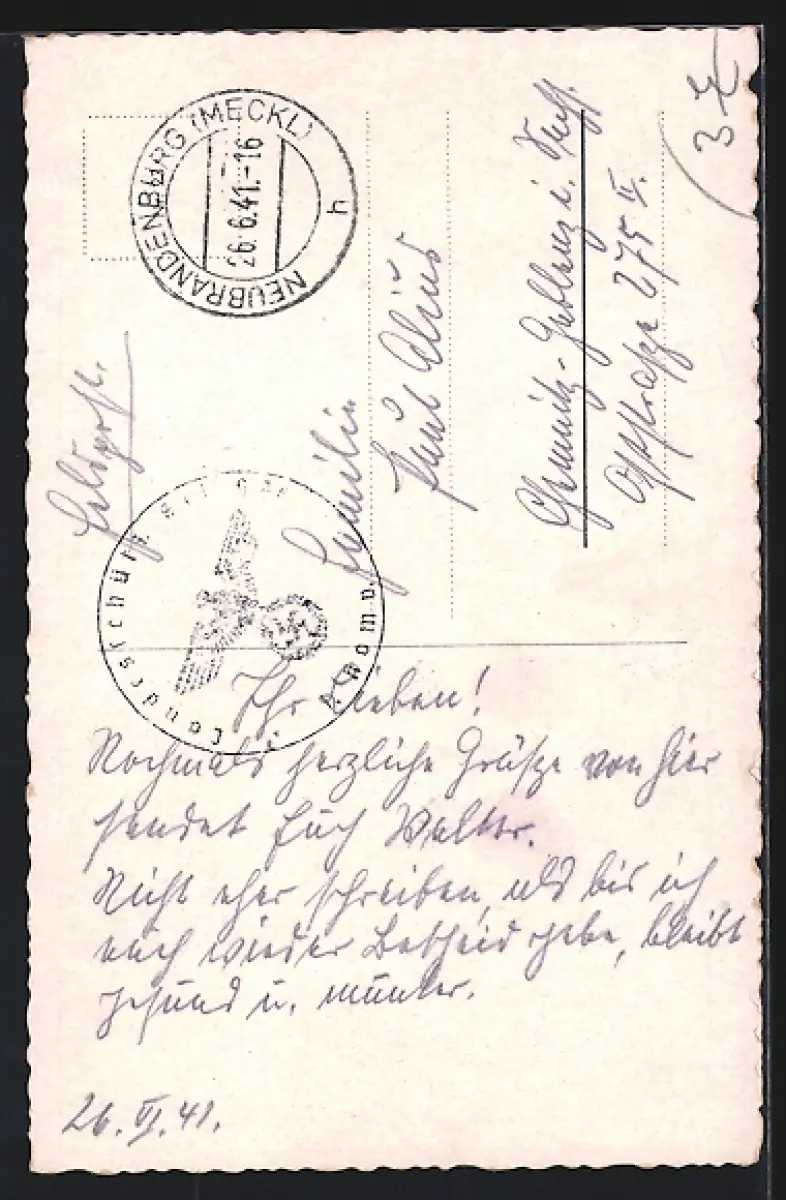 NEUBRANDENBURG (MECKL)
26.6.41.-16
h
Feldpost.
Familie
Paul
Chemnitz-Gablenz i. Sachs.
Oststraße 275 II.
Ihr Lieben!
Nochmals herzliche Grüße von hier
sendet Euch Walter.
Nicht eher schreiben, als bis ich
euch wieder Bescheid gebe, bleibt
gesund u. munter.
26. VI. 41.